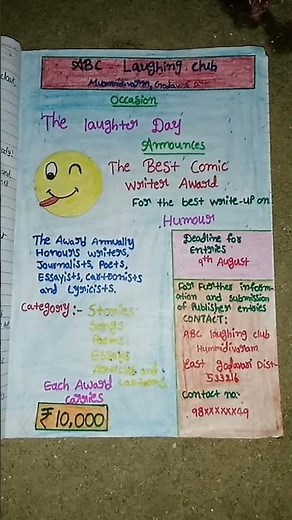 ABC Laughing club
Mummidivaram, Godavari Dist
Occasion
The laughter Day
Announces
The Best Comic
writer Award
For the best write-up on
Humour
The Award Annually
Honours writers,
Journalists, Poets,
Essayists, Cartoonists
and Lyricists.
Category:- Stories
Songs
Poems
Essays
Articles and
cartoons
Each Award
carries
₹ 10,000
Deadline for
Entries
9th August
For further inform-
ation and submission
of Publisher entries
CONTACT:
ABC laughing club
Mummidivaram
East godavari Dist-
533216
contact no:-
98xxxxxx49